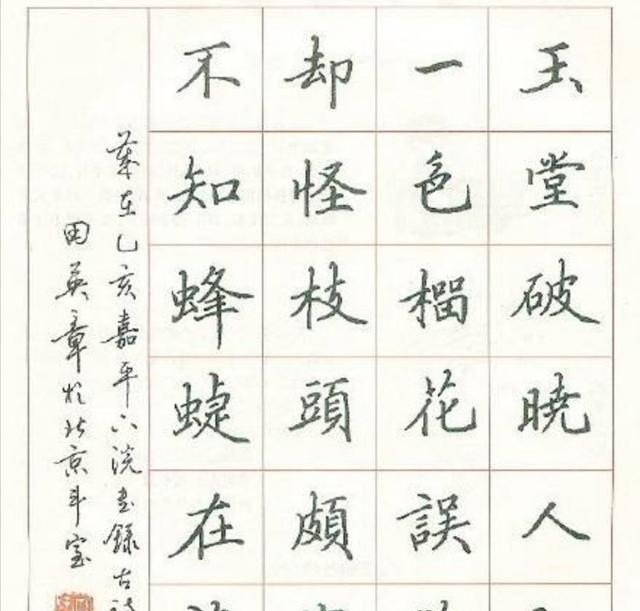 玉堂破暁人
一色榴花誤
却怪枝頭頗
不知蜂蜨在
歲在乙亥嘉平下浣書錄古詩
田英章於北京斗室